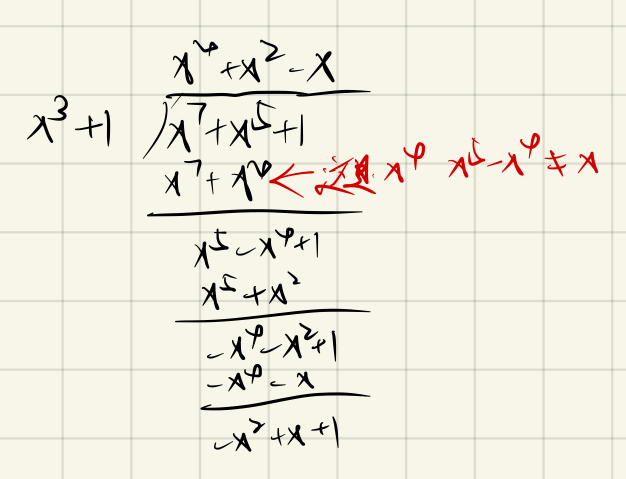 x⁴+x²-x
x³+1 )x⁷+x⁵+1
x⁷+x⁴ ← 这是x⁴ x⁵-x⁴≠x
x⁵-x⁴+1
x⁵+x²
-x⁴-x²+1
-x⁴-x
-x²+x+1